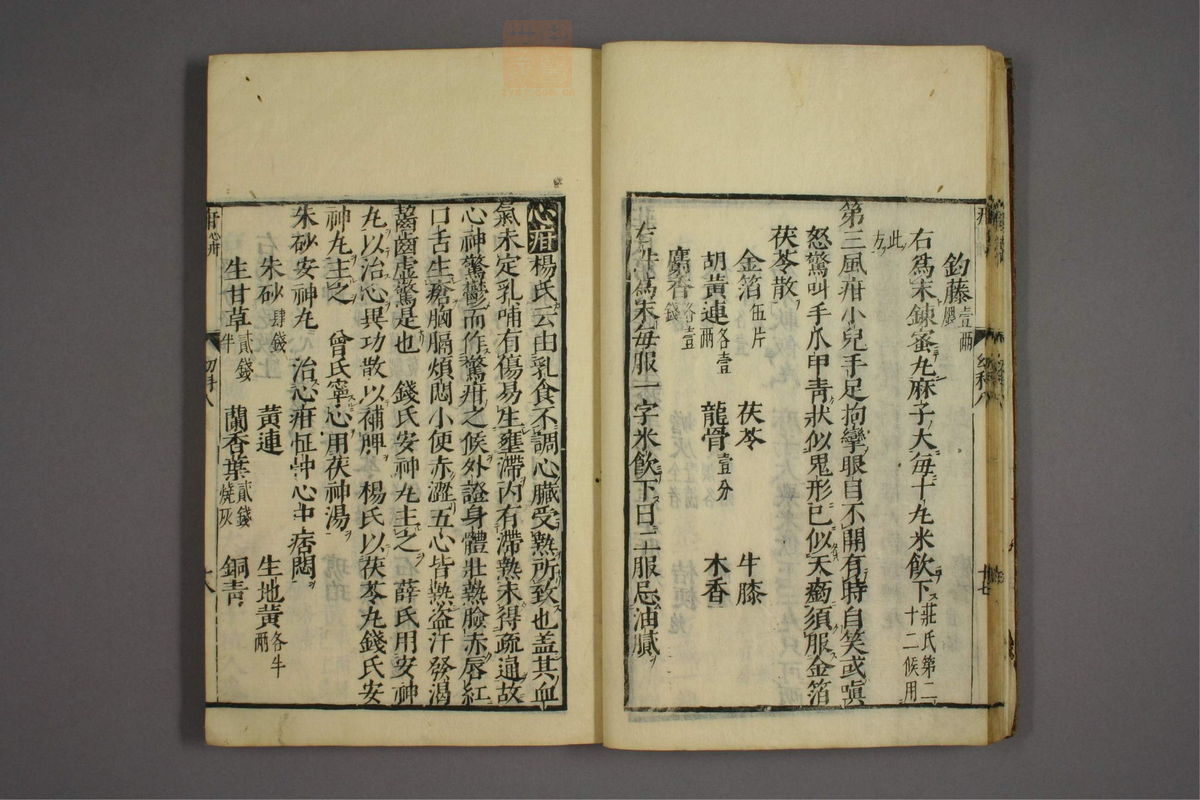 鈎藤壹兩
右爲末鍊蜜丸麻子大每十丸米飲下莊氏第二十二候用
此方
第三風疳小兒手足拘攣眼目不開有時自笑或嗔
怒驚叫手爪甲青狀似鬼形已似天瘹須服金箔
茯苓散
金箔伍片 茯苓 牛膝
胡黃連各壹兩 龍骨壹分 木香
麝香各壹錢
右件爲末每服一字米飲下日二服忌油膩
心疳楊氏云由乳食不調心臟受熱所致也盖其血
氣未定乳哺有傷易生壅滯內有滯熱未得疏通故
心神驚鬱而作驚疳之候外證身體壯熱臉赤唇紅
口舌生瘡胸膈煩悶小便赤澀五心皆熱盜汗發渴
齧齒虛驚是也 錢氏安神丸主之 薛氏用安神
丸以治心異功散以補脾 楊氏以茯苓丸錢氏安
神丸主之 曾氏寧心用茯神湯
朱砂安神丸 治心疳怔忡心中痞悶
朱砂肆錢 黃連 生地黃各半兩
生甘草貳錢半 蘭香葉貳錢燒灰 銅青
疳心疳 幼科八 十八